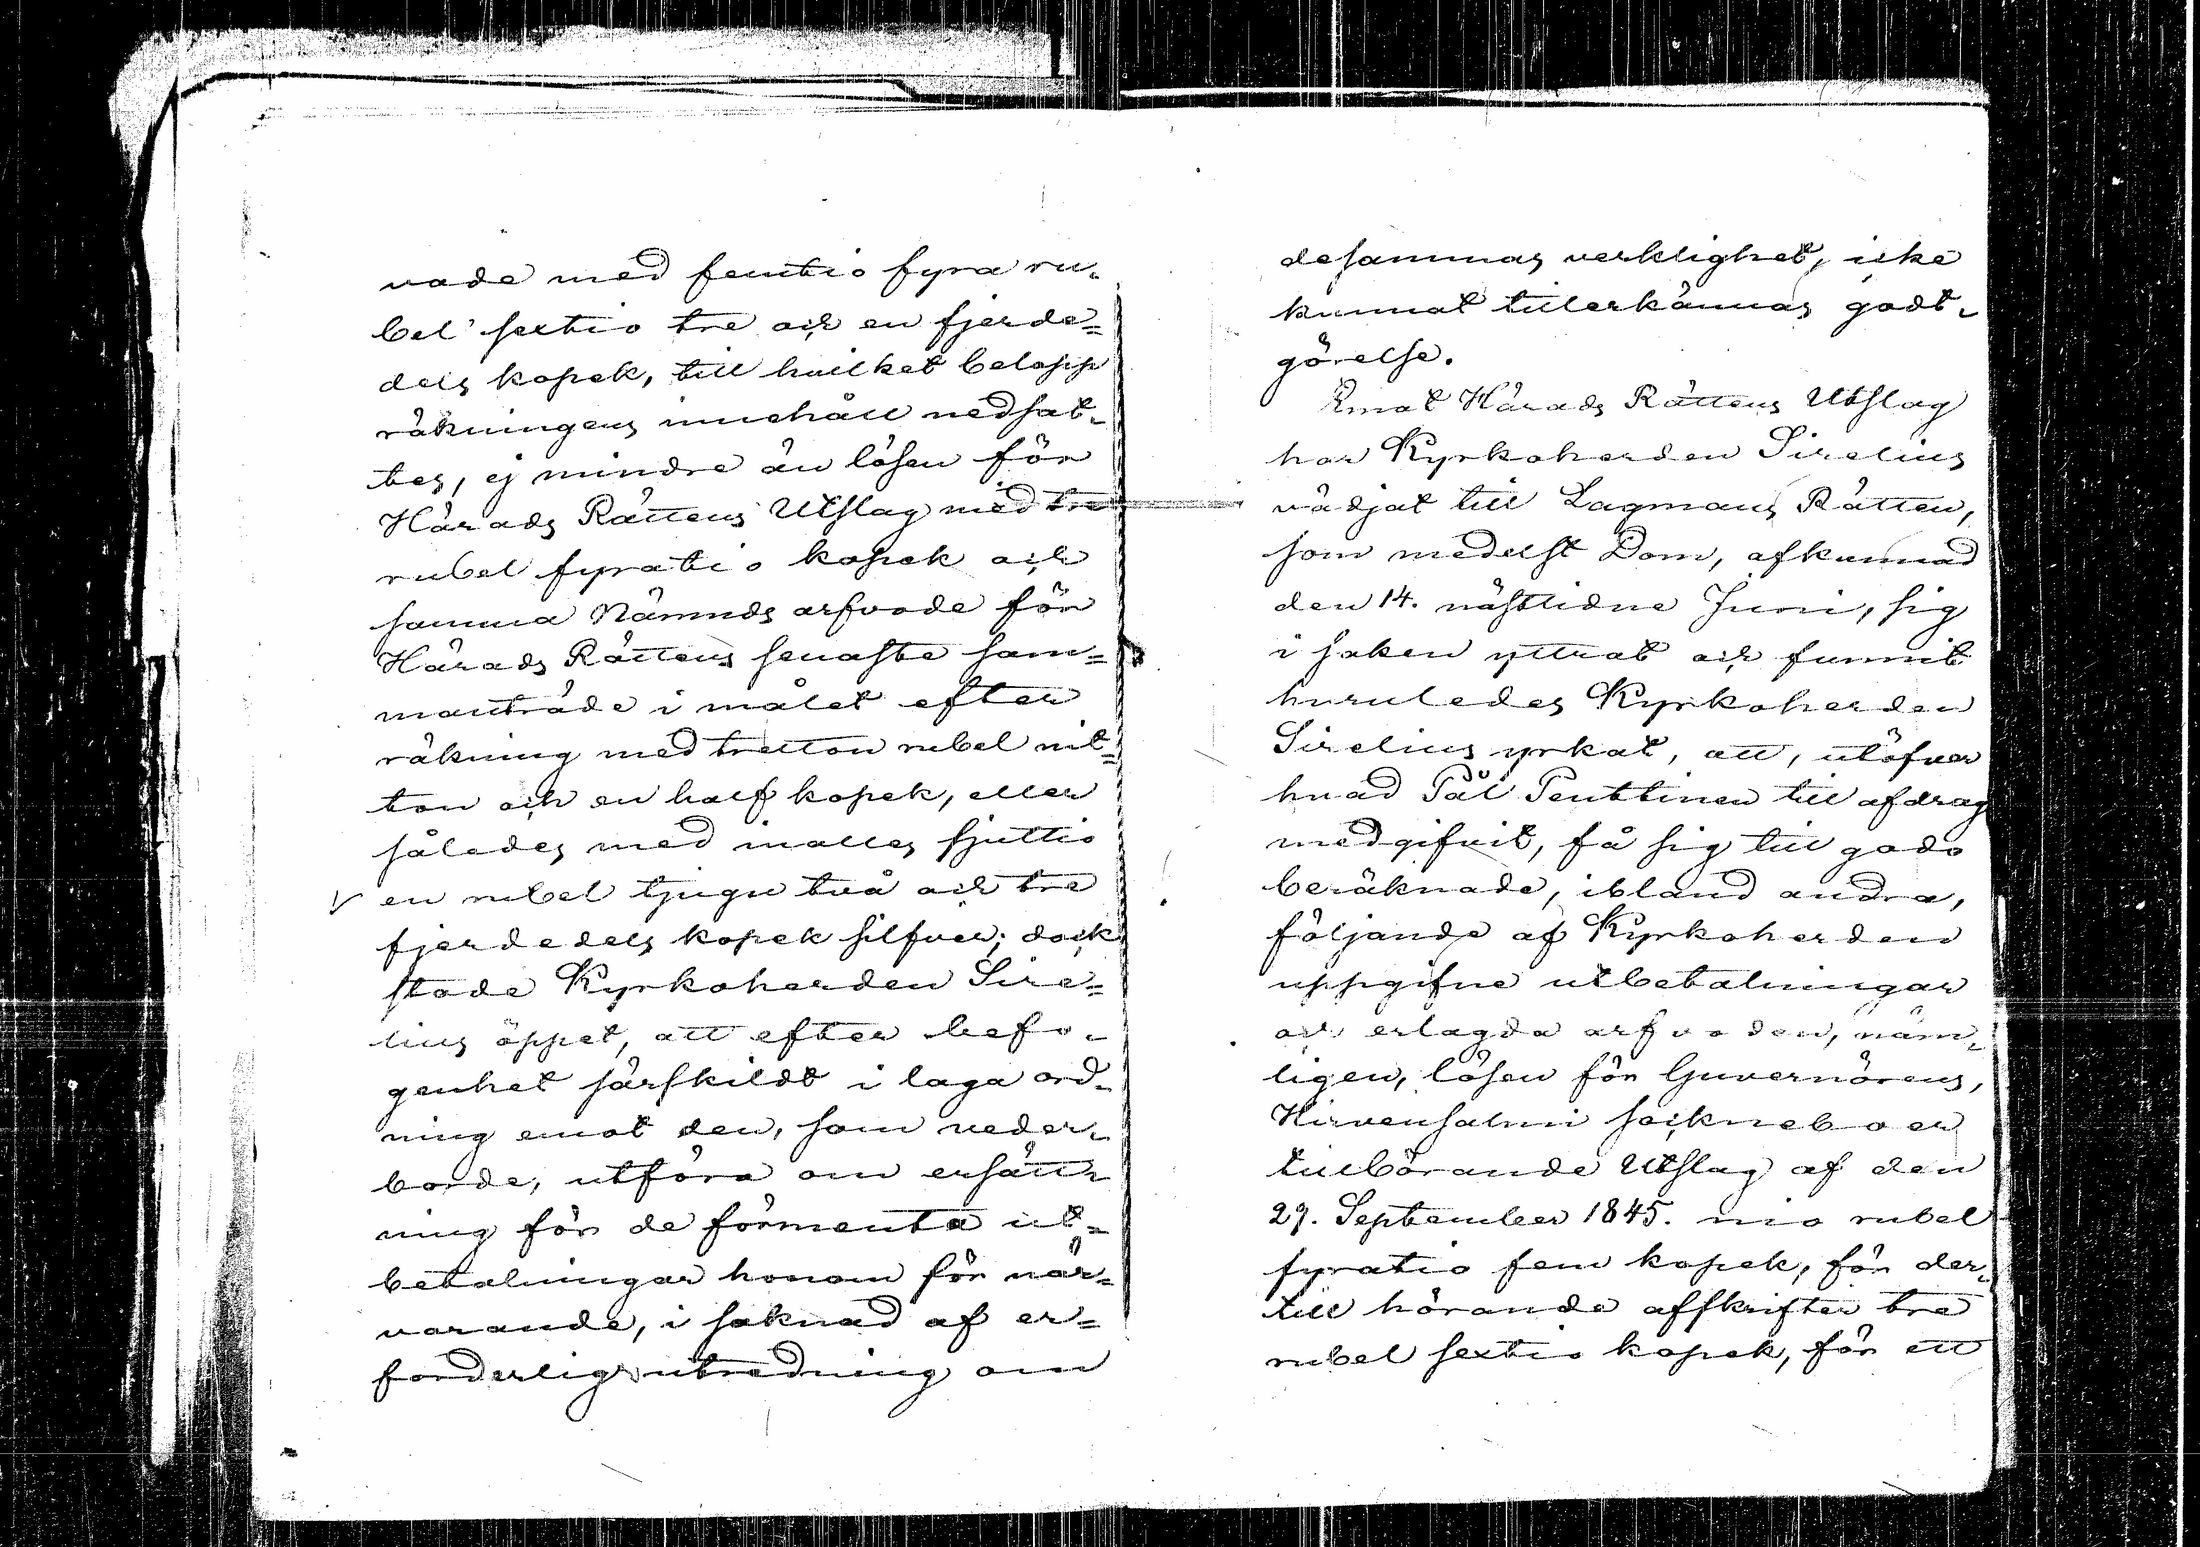 vade med femtio fyra ru-
bel sextio tre och en fjerde=
dels kopek, till hvilket belopp
räkningens innehåll nedsat-
tes, ej mindre än lösen för
Härads Rättens Utslag med tre
rubel fyratio kopek och
samma Nämnds arfvode för
Härads Rättens senaste sam=
manträde i målet efter
räkning med tretton rubel nit=
ton och en half kopek, eller
således med inalles sjuttio
en rubel tjugu två och tre
fjerdedels kopek silfver; dock
stode Kyrkoherden Sire=
lius öppet, att efter befo-
genhet särskildt i laga ord-
ning emot den, som veder-
borde, utföra om ersätt-
ning för de förmenta ut=
betalningar honom för när=
varande, i saknad af er=
forderlig utredning om
desammas verklighet, icke
kunnat tillerkännas godt-
görelse.
Emot Härads Rättens Utslag
har Kyrkoherden Sirelius
vädjat till Lagmans Rätten,
som medelst Dom, afkunnad
den 14. nästlidne Juni, sig
i saken yttrat och funnit
huruledes Kyrkoherden
Sirelius yrkat, att, utöfver
hvad Pål Penttinen till afdrag
medgifvit, få sig till godo
beräknade, ibland andra,
följande af Kyrkoherden
uppgifne utbetalningar
och erlagda arfvoden, näm-
ligen, lösen för Guvernörens,
Hirvensalmi sockneboer
tillhörande Utslag af den
29. September 1845. nio rubel
fyratio fem kopek, för der-
till hörande afskrifter tre
rubel sextio kopek, för ett